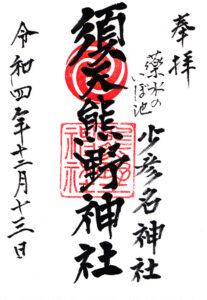 奉拝
藥水の
いぼ池
少彦名神社
須天熊野神社
令和四年十二月十三日